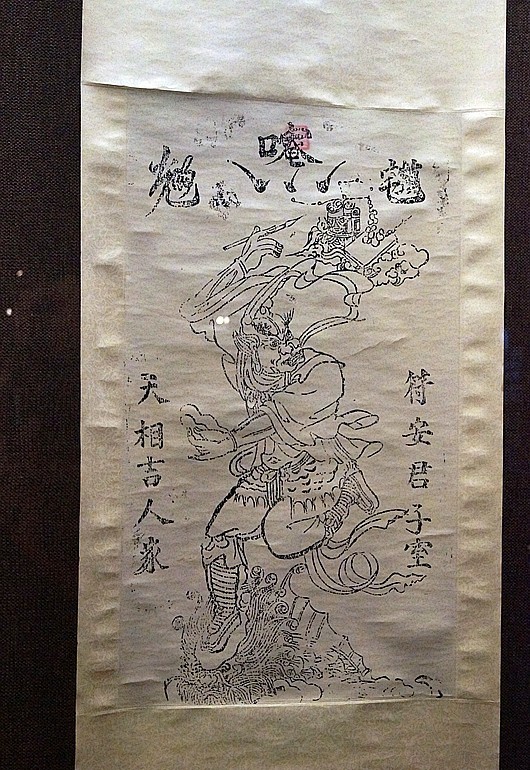 唵
符安君子室
天相吉人家